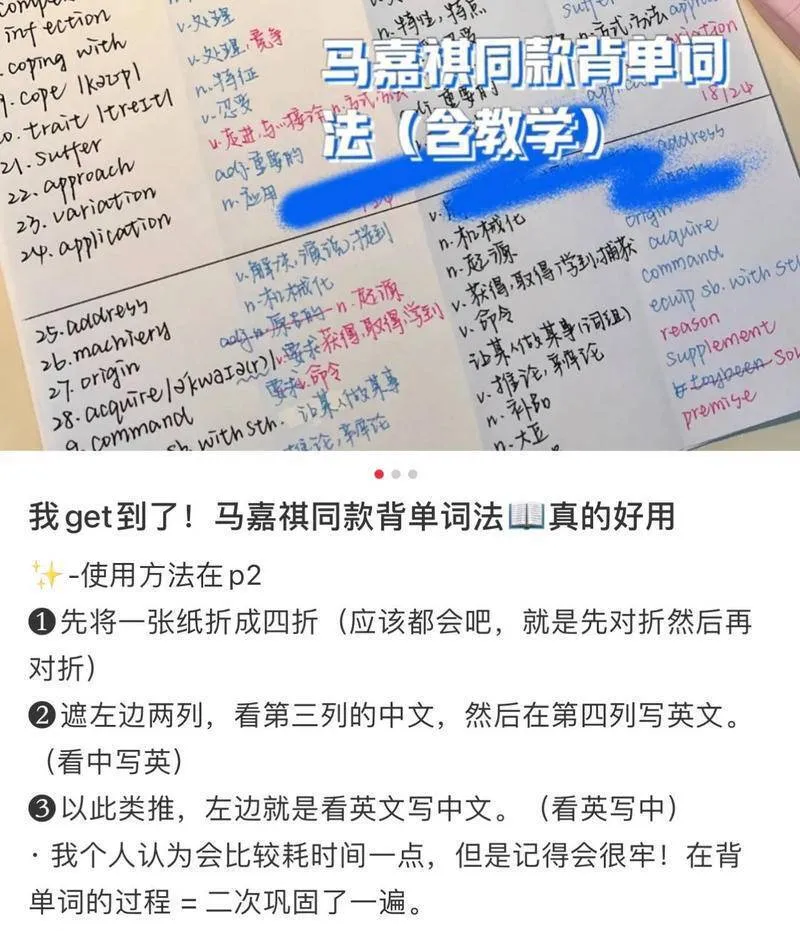 infection
coping with
cope |kəʊp|
trait |treɪt|
21. suffer
22. approach
23. variation
24. application
v.处理
v.处理,竞争
n.特征
v.忍受
adj.重要的
n.应用
n.特性,特点
suffer
18/24
马嘉祺同款背单词
法（含教学）
25.address
26.machiery
27.origin
28.acquire|ə'kwaɪə(r)|
9.command
sb. with sth.
v.解决,演说,提到
n.机械化
n.起源
v.获得,取得,学到
v.命令
让某人做某事
推论,辩论
n.机械化
n.起源
v.获得,取得,学到,捕获
v.命令
让某人做某事(词组)
v.推论,辩论
n.补助
n.大豆
address
origin
acquire
command
equip sb. with sth
reason
supplement
premise
我get到了！马嘉祺同款背单词法📖真的好用
✨-使用方法在p2
❶先将一张纸折成四折（应该都会吧，就是先对折然后再
对折）
❷遮左边两列，看第三列的中文，然后在第四列写英文。
（看中写英）
❸以此类推，左边就是看英文写中文。（看英写中）
· 我个人认为会比较耗时间一点，但是记得会很牢！在背
单词的过程 = 二次巩固了一遍。